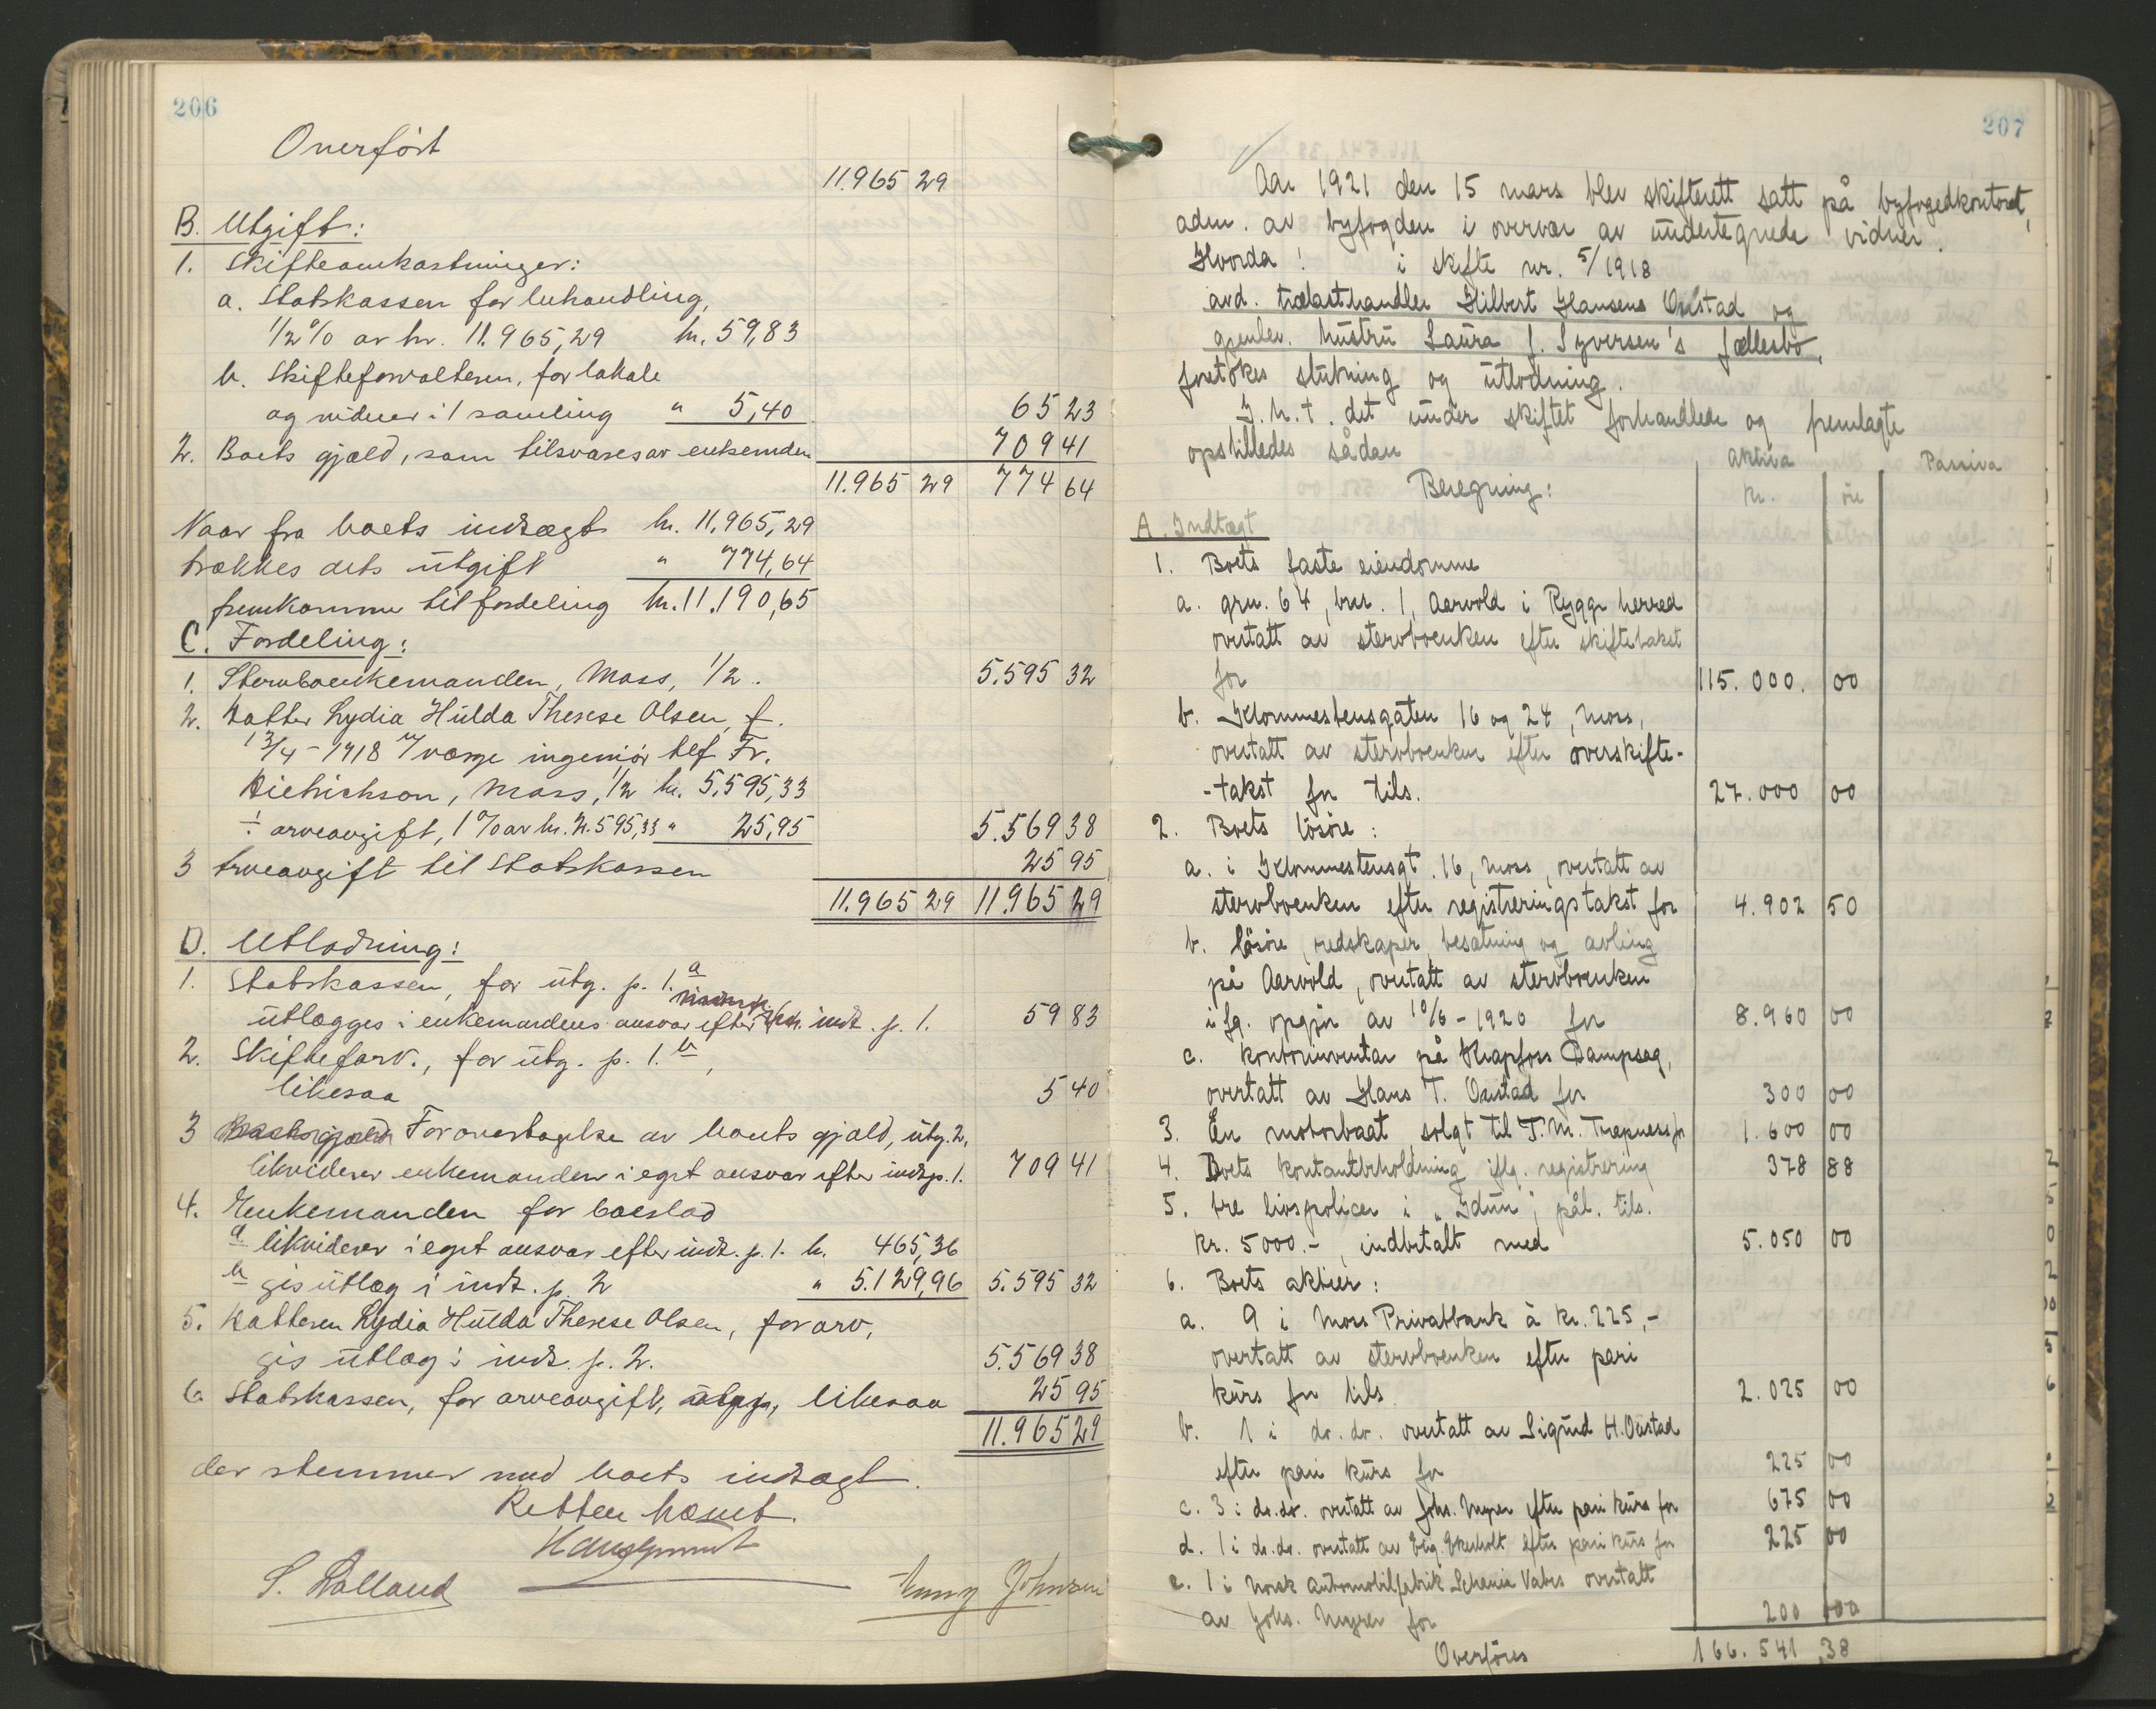 206
Overført
11.965 29
B. Utgift:
1. Skifteomkostninger:
a. Statskassen for behandling,
1/2 % av kr. 11.965,29 kr. 59,83
b. Skifteforvalteren, for lokale
og vidner i 1 samling " 5,40 65 23
2. Boets gjæld, som tilsvares av enkemanden 709 41
11.965 29 774 64
Naar fra boets indtægt kr. 11.965,29
trækkes dets utgift " 774,64
fremkommer til fordeling kr. 11.190,65
C. Fordeling:
1. Stervboenkemanden, Moss, 1/2. 5.595 32
2. Datter Lydia Hulda Therese Olsen, f.
13/4-1918 værge ingeniør Fr.
Dietrichson, Moss, 1/2 kr. 5.595,33
÷ arveavgift, 1 % av kr. 2.595,33 " 25,95 5.569 38
3 Arveavgift til Statskassen 25 95
11.965 29 11.965 29
D. Utlodning:
1. Statskassen, for utg. p. 1.a
utlægges i enkemandens ansvar efter indt. p. 1. 59 83
2. Skifteforv., for utg. p. 1.b,
likesaa 5 40
3 For overtagelse av boets gjæld, utg. 2,
likviderer enkemanden i eget ansvar efter indt. p. 1. 709 41
4. Enkemanden for boeslod
a likviderer i eget ansvar efter indt. p. 1. kr. 465,36
b gis utlæg i indt. p. 2 " 5.129,96 5.595 32
5. Datteren Lydia Hulda Therese Olsen, for arv,
gis utlæg i indt. p. 2. 5.569 38
6 Statskassen, for arveavgift, likesaa 25 95
11.965 29
der stemmer med boets indtægt.
Retten hævet.
S. Dalland Johnsen
207
Aar 1921 den 15 mars blev skifterett satt på byfogedkontoret,
adm. av byfogden i overvær av undertegnede vidner.
Hvorda! i skifte nr. 5/1918
avd. trælasthandler Hilbert Hansens Oustad og
gjenlev. hustru Laura f. Syversen's fællesbo,
foretokes slutning og utlodning.
I. h. t. det under skiftet forhandlede og fremlagte
opstilledes sådan Aktiva Passiva
Beregning: kr. øre
A. Indtægt
1. Boets faste eiendomme
a. grn. 64, brn. 1, Aarvold i Rygge herred
overtatt av stervboenken efter skiftetakst
for 115.000. 00
b. Klommestensgaten 16 og 24, Moss,
overtatt av stervboenken efter overskifte-
-takst for tils. 27.000 00
2. Boets løsøre:
a. i Klommestensgt. 16, Moss, overtatt av
stervboenken efter registreringstakst for 4.902 50
b. løsøre, redskaper, besætning og avling
på Aarvold, overtatt av stervboenken
ifg. opgjør av 10/6-1920 for 8.960 00
c. kontorinventar på Krapfoss Dampsag,
overtatt av Hans T. Oustad for 300 00
3. En motorbaat solgt til T. M. 1.600 00
4. Boets kontantbeholdning iflg. registrering 378 88
5. tre livspolicer i "Idun", pål. tils.
kr. 5000.- indbetalt med 5.050 00
6. Boets aktier:
a. 9 i Moss Privatbank à kr. 225,-
overtatt av stervboenken efter pari
kurs for tils. 2.025 00
b. 1 i do. do. overtatt av Sigurd H. Oustad
efter pari kurs for 225 00
c. 3 i do. do. overtatt av Johs. Myren efter pari kurs for 675 00
d. 1 i do. do. overtatt av efter pari kurs for 225 00
e. 1 i Norsk Automobilfabrik Scania Vabis overtatt
av Johs. Myren for 200 00
Overføres 166.541,38